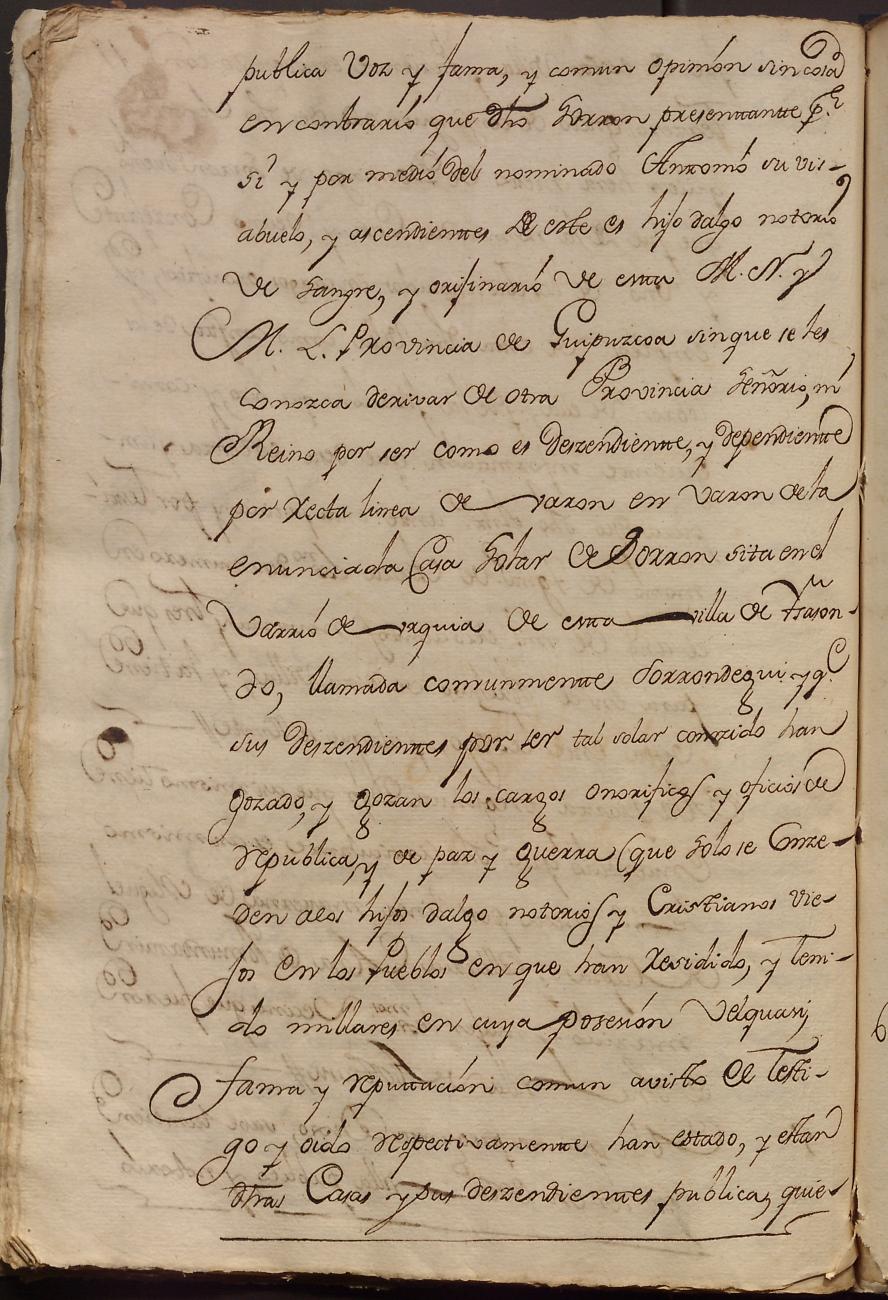 publica Voz y fama, y comun opinión sin cosa
en contrario que dho Sorron presentante p.r
sí y por medio del nominado Antonio su vis-
abuelo, y ascendientes de este es hijo dalgo notorio
de Sangre, y orijinario de esta M. N. y
M. L. Provincia de Guipuzcoa sin que se les
conozca derivar de otra Provincia Señorio, ni
Reino por ser como es deszendiente, y dependiente
por recta linea de varon en varon de la
enunciada Casa Solar de Sorron sita en el
Varrio de urquia de esta villa de Ysason-
do, llamada comunmente Sorrondegui y q.e
sus deszendientes por ser tal solar conozido han
gozado, y gozan los cargos onorificos y oficios de
republica, y de paz y guerra (que solo se conze-
den a los hijos dalgo notorios y Cristianos vie-
jos en los Pueblos en que han residido, y teni-
do millares en cuya posesión Velquasi,
fama y reputtación comun a visto el testi-
go y oido respectivamente han estado, y estan
dhas Casas y sus deszendientes publica, quie-